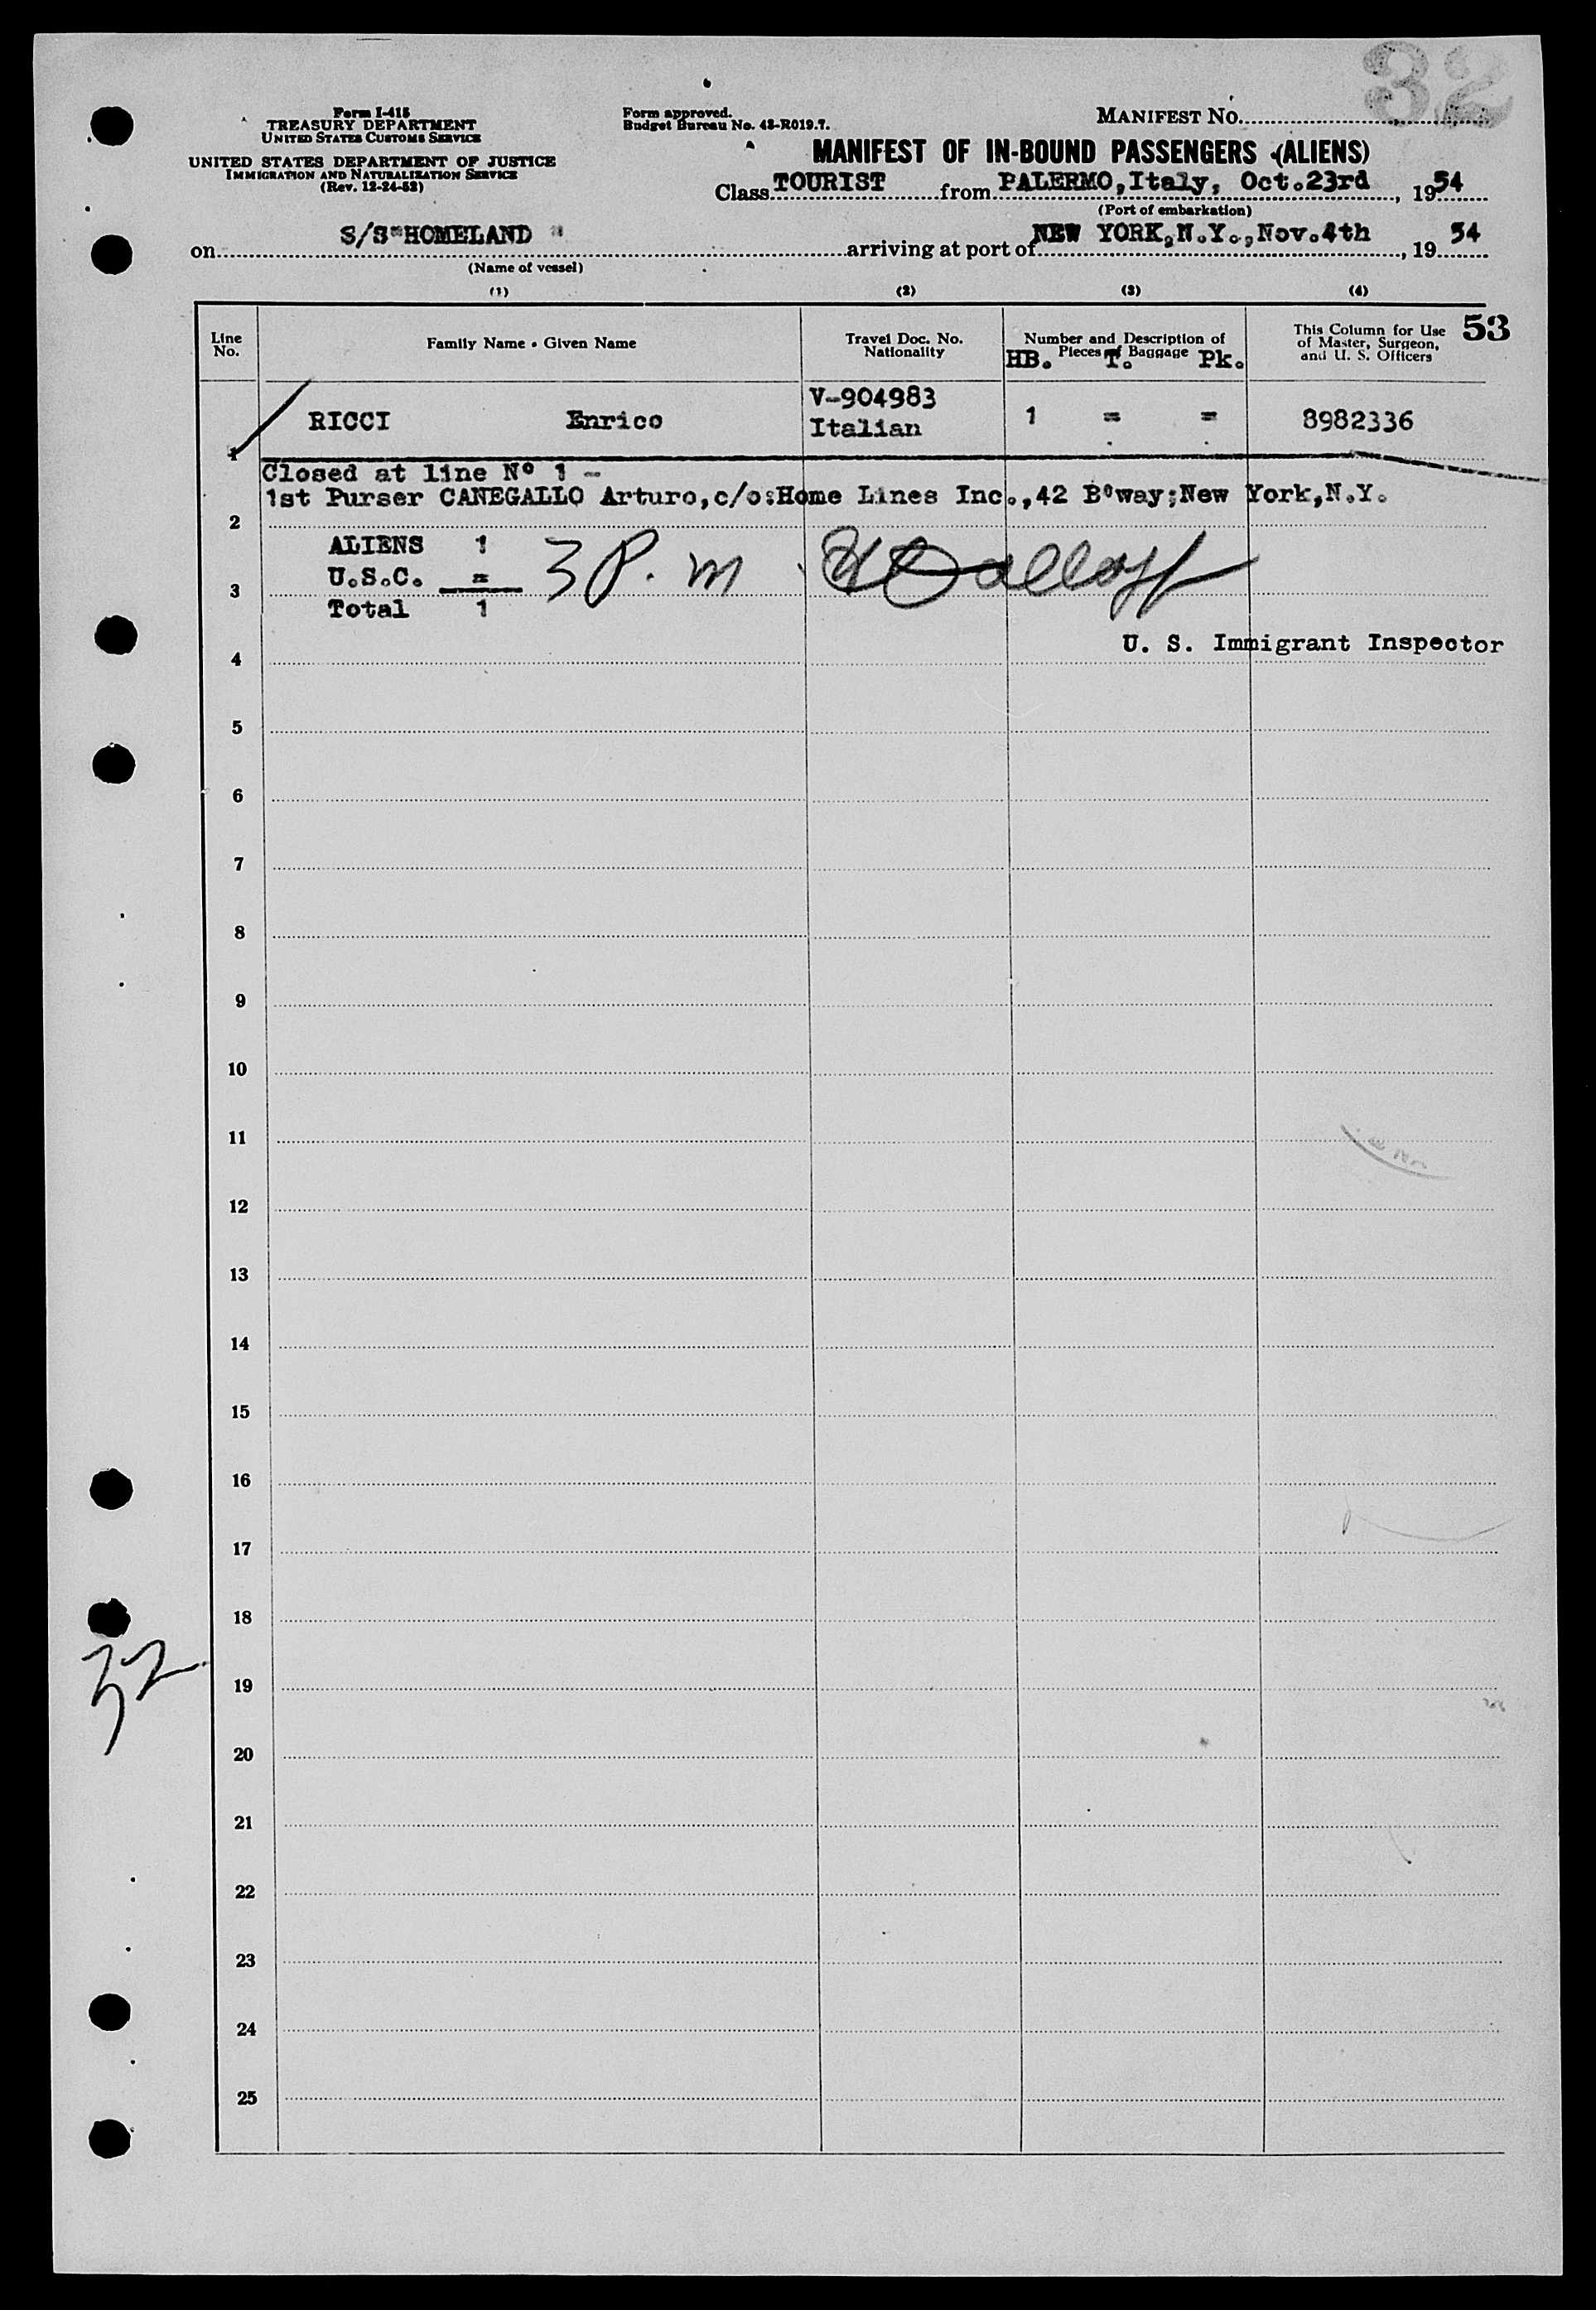 32
Form I-415
TREASURY DEPARTMENT
UNITED STATES CUSTOMS SERVICE
UNITED STATES DEPARTMENT OF JUSTICE
IMMIGRATION AND NATURALIZATION SERVICE
(Rev. 12-24-52)
Form approved.
Budget Bureau No. 43-R019.7.
MANIFEST NO.
MANIFEST OF IN-BOUND PASSENGERS (ALIENS)
Class TOURIST from PALERMO, Italy, Oct.23rd, 1954
(Port of embarkation)
on S/S"HOMELAND" arriving at port of NEW YORK,N.Y.,Nov.4th, 1954
(Name of vessel)
(1) (2) (3) (4)
Line No. Family Name - Given Name Travel Doc. No. Nationality Number and Description of Pieces of Baggage This Column for Use of Master, Surgeon, and U. S. Officers 53
HB. T. Pk.
V-904983
1 RICCI Enrico Italian 1 = = 8982336
Closed at line Nº 1 -
1st Purser CANEGALLO Arturo,c/o:Home Lines Inc.,42 B°way;New York,N.Y.
2
ALIENS 1
U.S.C. = 3 P.m
3
Total 1
U. S. Immigrant Inspector
4
5
6
7
8
9
10
11
12
13
14
15
16
17
18
32
19
20
21
22
23
24
25